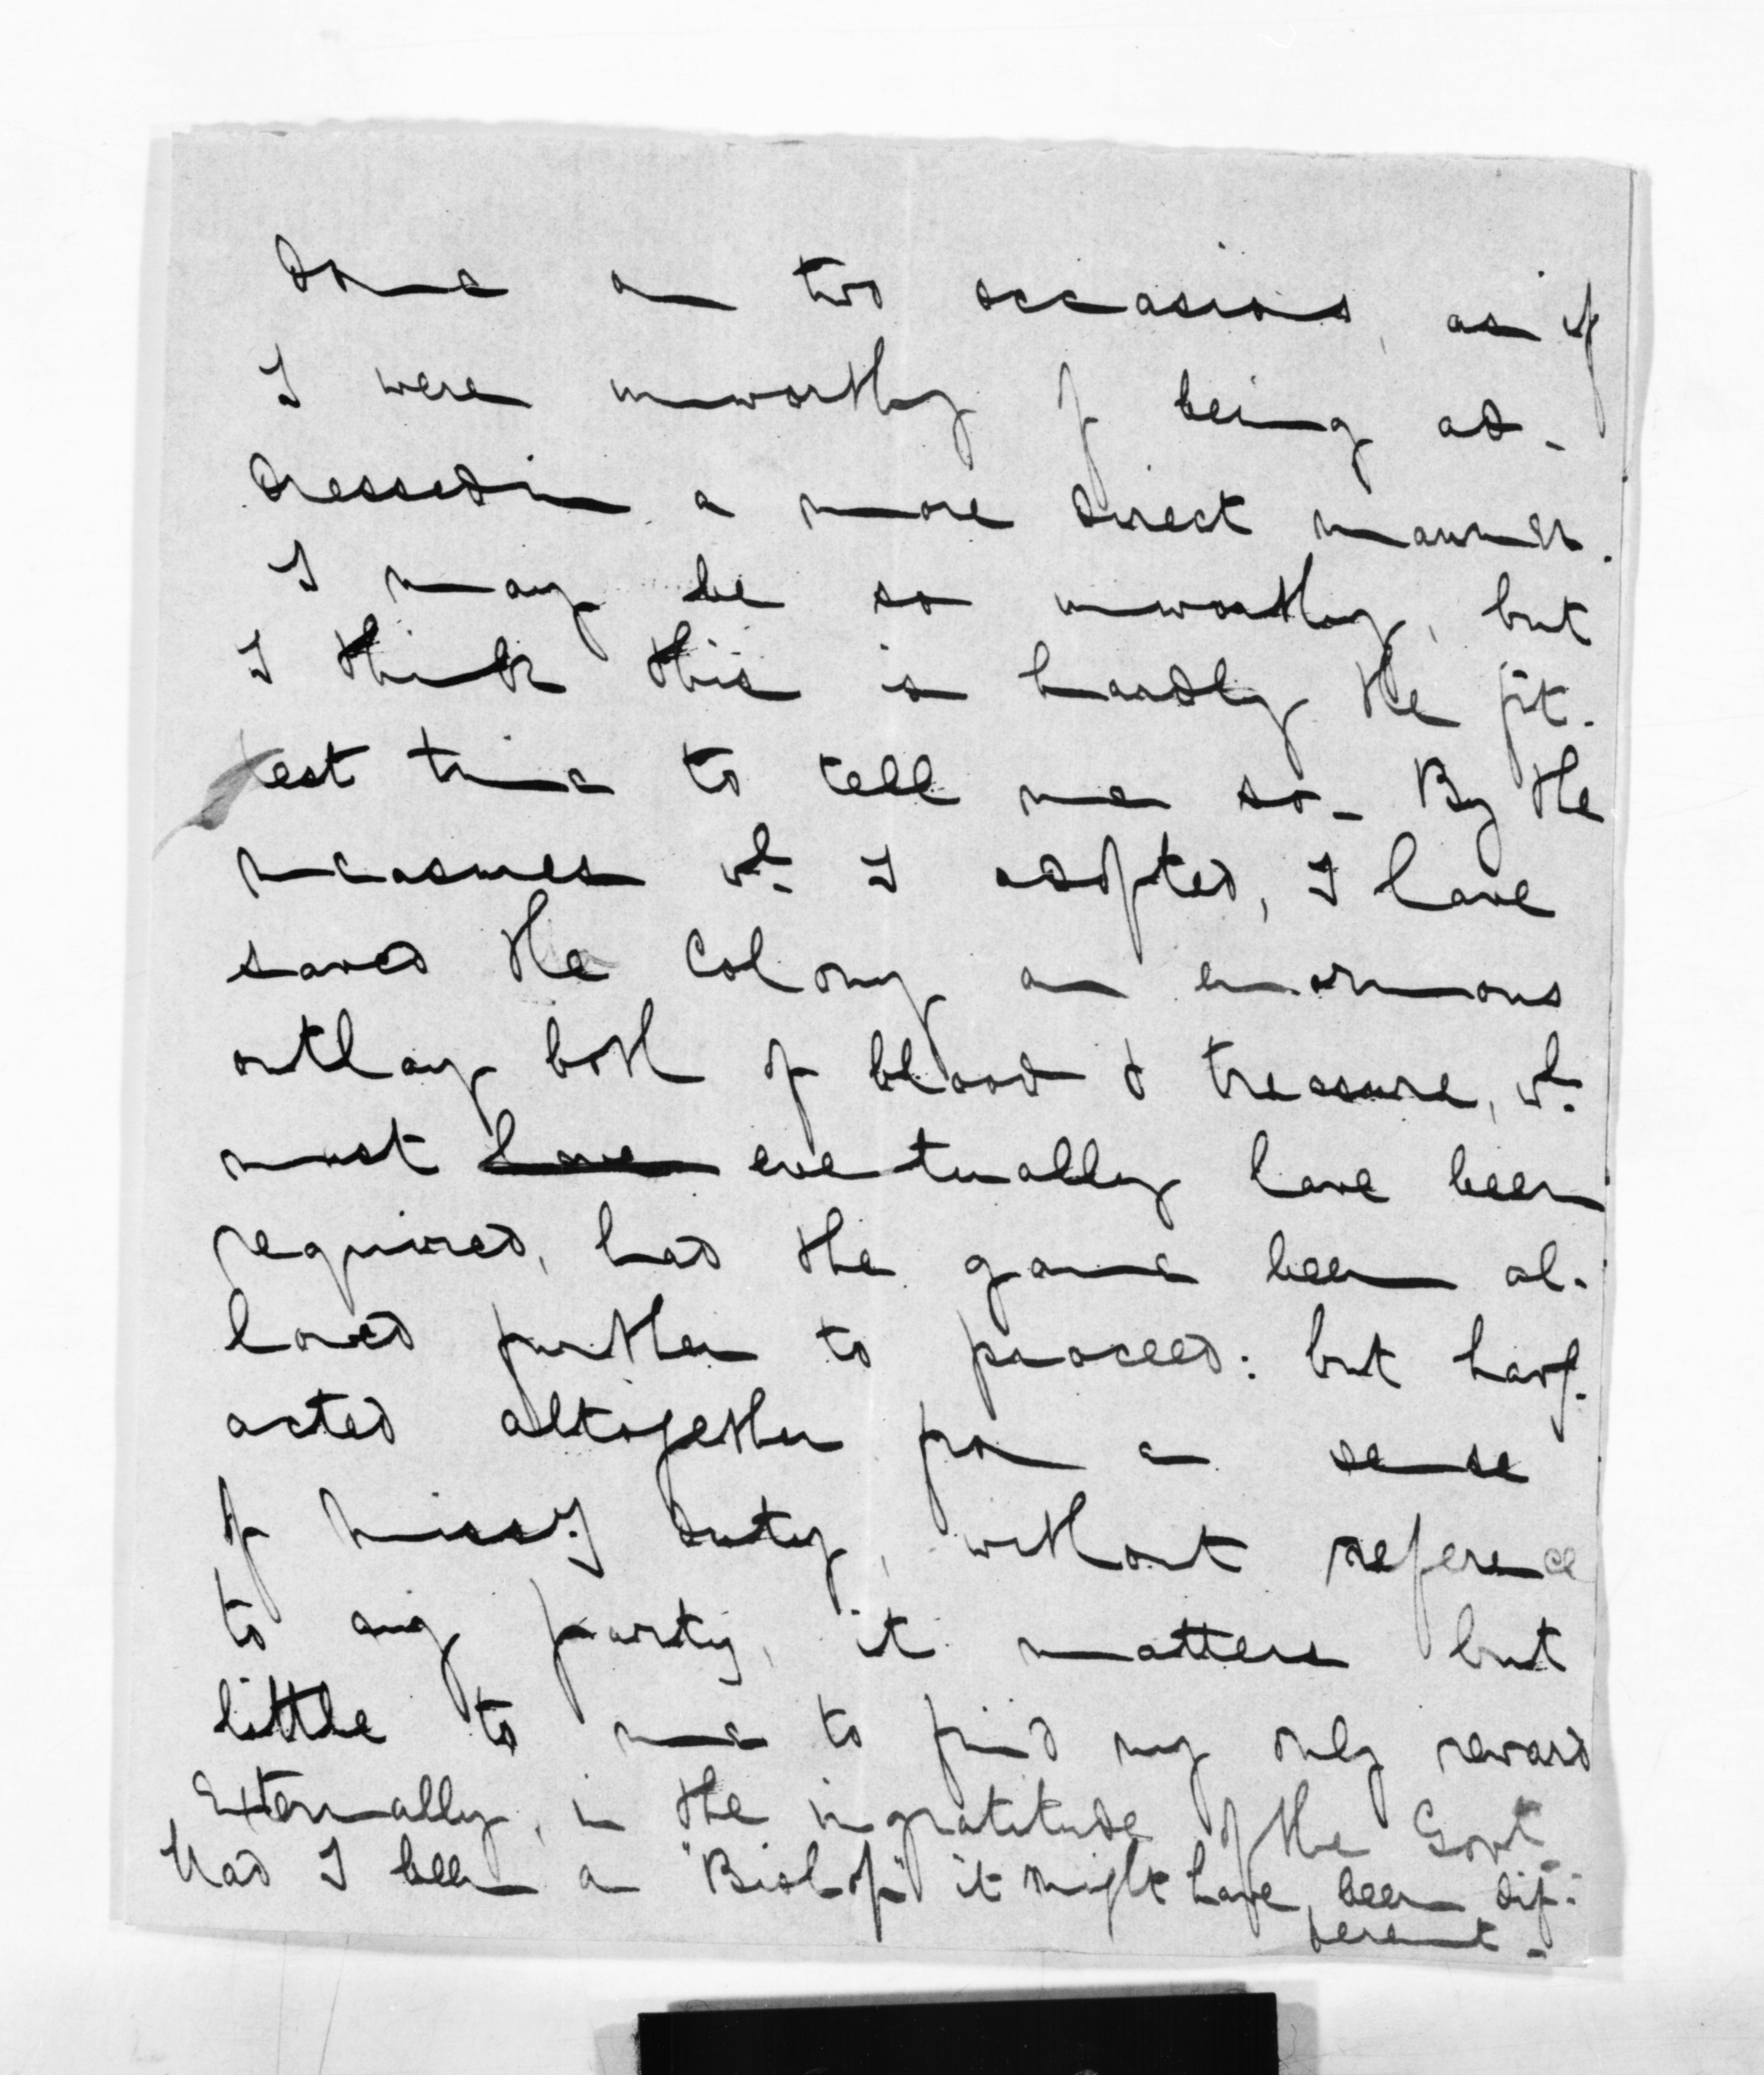 done on two occasions, as if
I were unworthy of being ad-
dressed in a more direct manner.
I may be so unworthy, but
I think this is hardly the fit-
test time to tell me so - By the
measures wh. I adopted, I have
saved the Colony an enormous
outlay both of blood & treasure, wh.
must have eventually have been
required, had the game been al-
lowed further to proceed: but havg.
acted altogether from a sense
of missy. duty, without reference
to any party, it matters but
little to me to find my only reward
externally, in the ingratitude of the Govt.
Had I been a "Bishop" it might have been dif-
ferent -